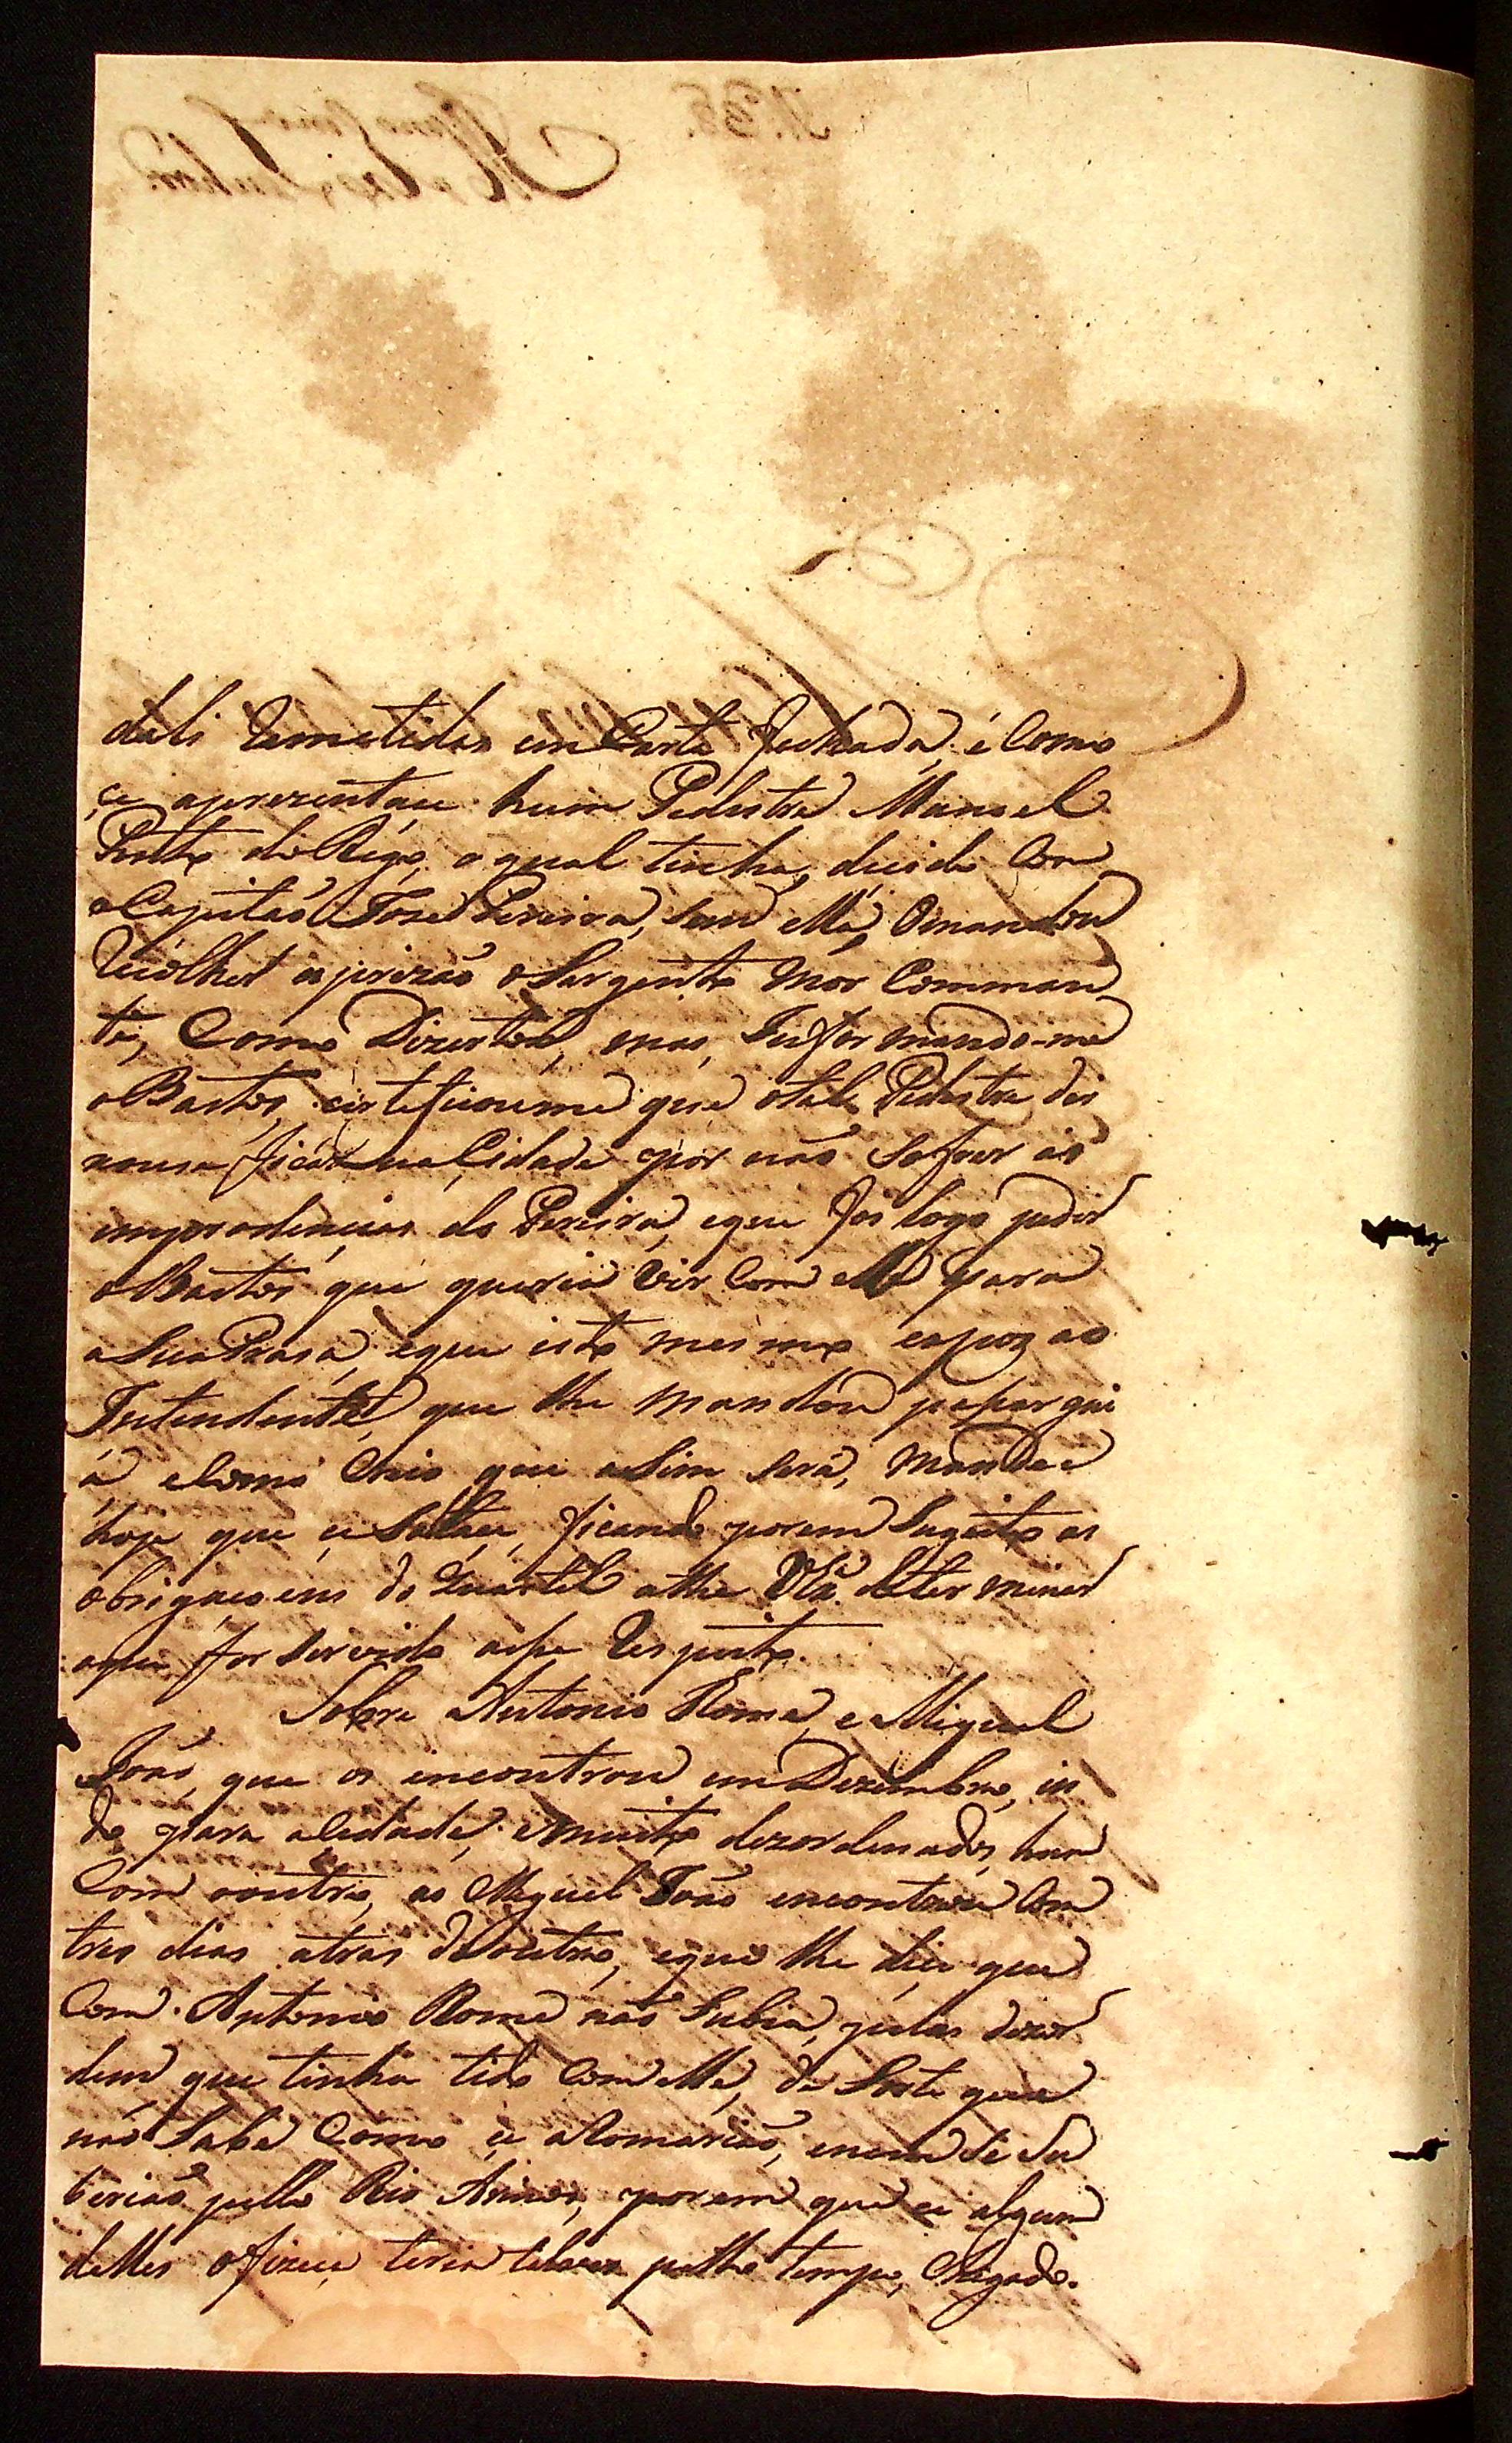 dali Remetidas em Carta fechada, é Como
çe aprezentaçe hum Pedestre Manoel
Pinto do Rego, o qual tinha, decido Com
o Capitaõ Joze Pereira, Sem elle, O mandou
Recolher a prizaõ o Sargento Mor Comman
te, Como Dizertor, mas, Informando-me
o Bastos, certeficoume que o tal Pedestre dei
xouse ficar na Cidade por naõ Sofrer as
imprudencias do Pereira, e que foi logo pedir
o Bastos que queria Vir Com elle para
a Sua Praça, e que isto mesmo expoz ao
Intendente, que lhe mandou paçar gui
a, e Como Creio que aSim será, mandei
hoje que çe Soltaçe, ficando porem Sugeito as
obrigaçoens do Quartel athe VSª. determinar
o que for Servido a eSse Respeito.
Sobre Antonio Roma, e Miguel
Joaõ, que os encontrou em Dezembro, in
do para a Cidade, e muito dezordenados, hum
Com ooutro, ao Miguel Joaõ encontrou Com
tres dias atras do outro, e que lhe diçe que
Com Antonio Roma naõ Subia, pelas dezor
dem que tinha tido Com elle, de Sorte que
naõ Sabe Como çe a Comariaõ, e nem Se Su
biriaõ pello Rio Arinos, porem que çe algum
delles o fizeçe, teria talvez pello tempo, Chegado.